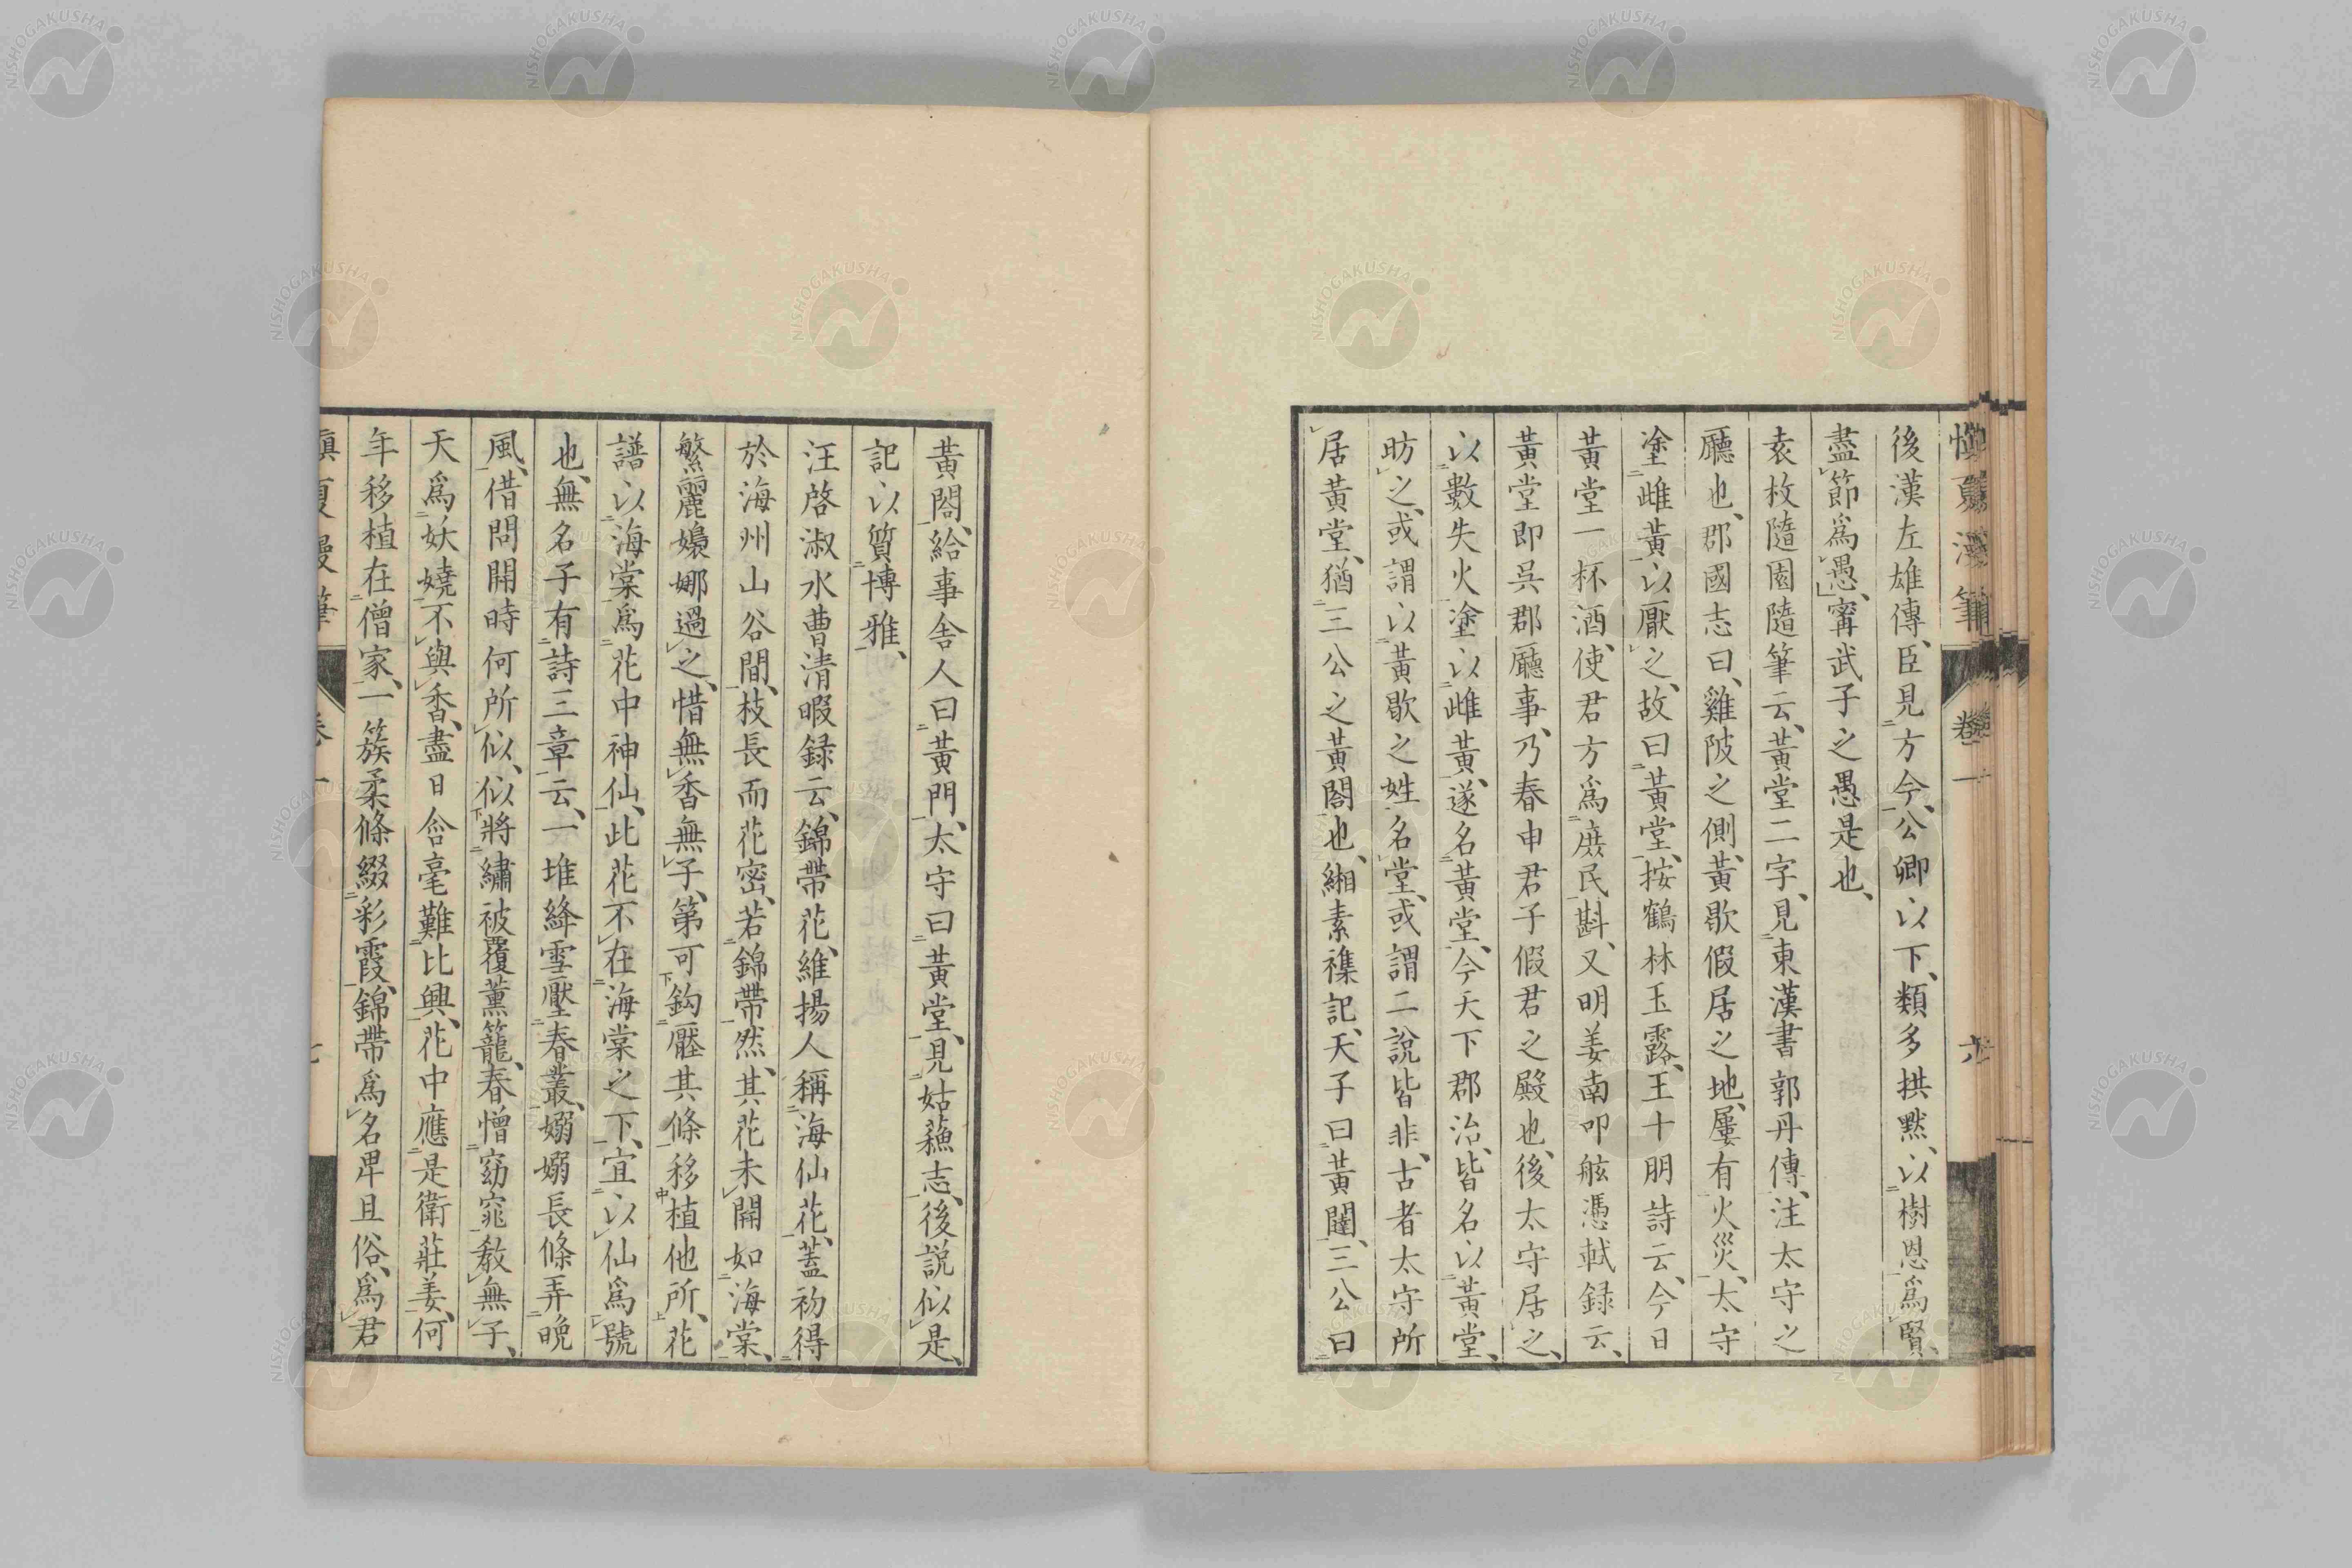 後漢左雄傳、臣見方今、公卿以下、類多拱黙、以樹恩爲賢、
盡節爲愚、寗武子之愚是也、
袁枚隨園隨筆云、黃堂二字、見東漢書郭丹傳、注太守之
廳也、郡國志曰、雞陂之側、黃歇假居之地、屢有火災、太守
塗雌黃、以厭之、故曰黃堂、按鶴林玉露、王十朋詩云、今日
黃堂一杯酒、使君方爲庶民斟、又明姜南叩舷憑軾録云、
黃堂即吳郡廳事、乃春申君子假君之殿也、後太守居之、
以數失火塗以雌黃、遂名黃堂、今天下郡治、皆名以黃堂、
昉之、或謂以黃歇之姓名堂、或謂二說皆非、古者太守所
居黃堂、猶三公之黃閤也、緗素襍記、天子曰黃闥、三公曰
黃閤、給事舍人曰黃門、太守曰黃堂、見姑蘓志、後說似是、
記以質博雅、
汪啓淑水曹清暇録云、錦帶花、維揚人稱海仙花、蓋初得
於海州山谷間、枝長而花密、若錦帶然、其花未開如海棠、
繁麗嬝娜過之、惜無香無子、第可鈎壓其條移植他所、花
譜以海棠爲花中神仙、此花不在海棠之下、宜以仙爲號
也、無名子有詩三章云、一堆絳雪壓春叢、嫋嫋長條弄晩
風、借問開時何所似、似將繡被覆薰籠、春憎窈窕教無子、
天爲妖嬈不與香、盡日含毫難比興、花中應是衛莊姜、何
年移植在僧家、一簇柔條綴彩霞、錦帶爲名卑且俗、爲君
愼夏漫筆 卷一 六